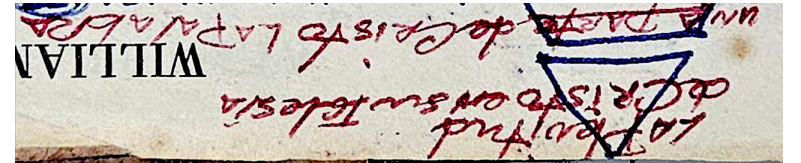 LA Plenitud
de CRISTO en su Iglesia
WILLIAM
una parte de Cristo LA PALABRA